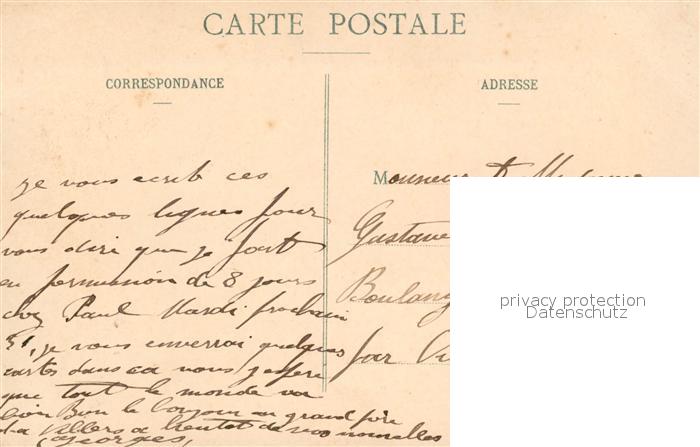 CARTE POSTALE
CORRESPONDANCE
ADRESSE
je vous ecrit ces
quelques lignes pour
vous dire que je part
en permission de 8 jours
chez Paul Mardi prochain
je vous enverrai quelques
cartes dans ca vous j'espere
que tout le monde va
bien Bon le bonjour au grand père
a bientot de vos nouvelles
Georges
Monsieur & Madame
Gustave
Boulang
par
privacy protection
Datenschutz